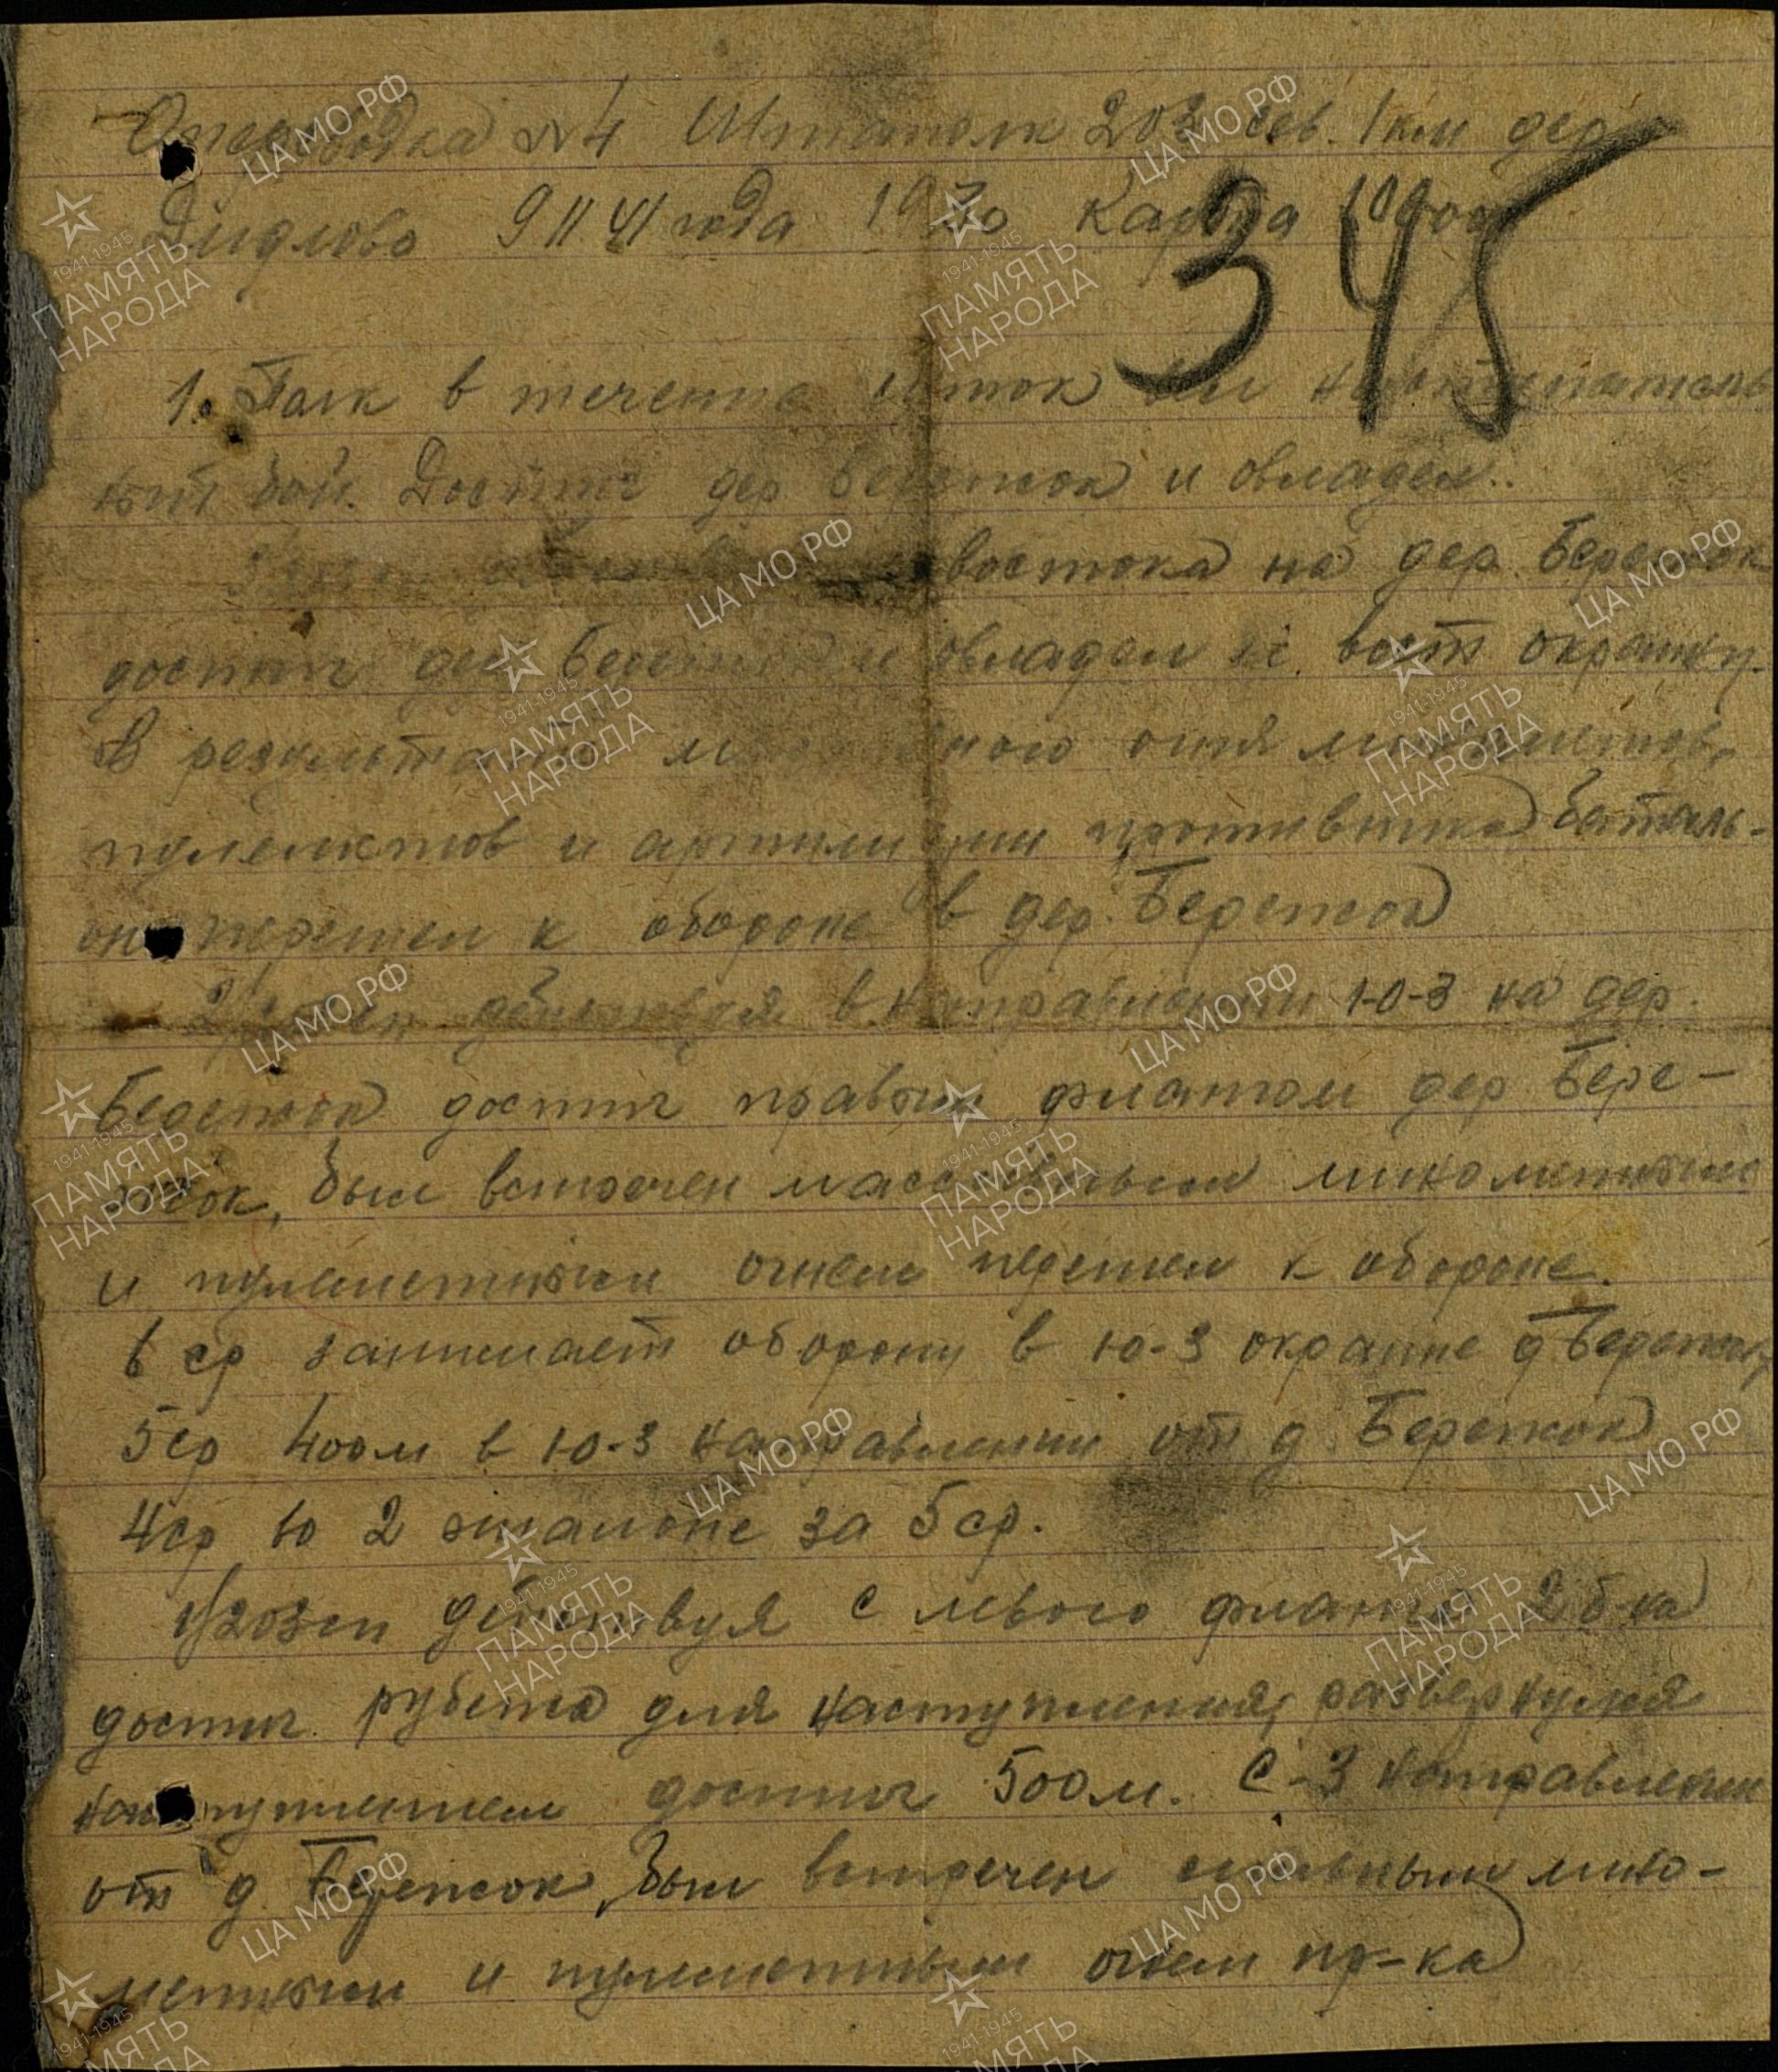 Оперсводка №4 Штаполк 203 сев. 1 км дер.
Дидлово 9 11 41 года 19 30 Карта 100000
345
1. Полк в течение суток вел наступатель
ный бой. Достиг дер Бережок и овладел..
востока на дер. Бережок
достиг дер Бережок и овладел вост окраину.
В результате ного огня минометов,
пулеметов и артилерии противника баталь-
он перешел к обороне в дер. Бережок
действуя в направлении Ю-З на дер.
Бережок достиг правым флангом дер Бере-
жок, был встречен массивным минометным
и пулеметным огнем перешел к обороне.
6 ср занимает оборону в ю-з окраине д Бережок,
5 ср 400 м в ю-з направлении от д. Бережок
4 ср во 2 эшалоне за 5 ср.
1/203 сп действуя с левого фланга 2 б-на
достиг рубежа для наступления, развернулся
наступлением достиг 500 м. С-З направлении
от д. Бережок, был встречен сильным мино-
метным и пулеметным огнем пр-ка
ЦА МО РФ
ПАМЯТЬ НАРОДА
1941-1945